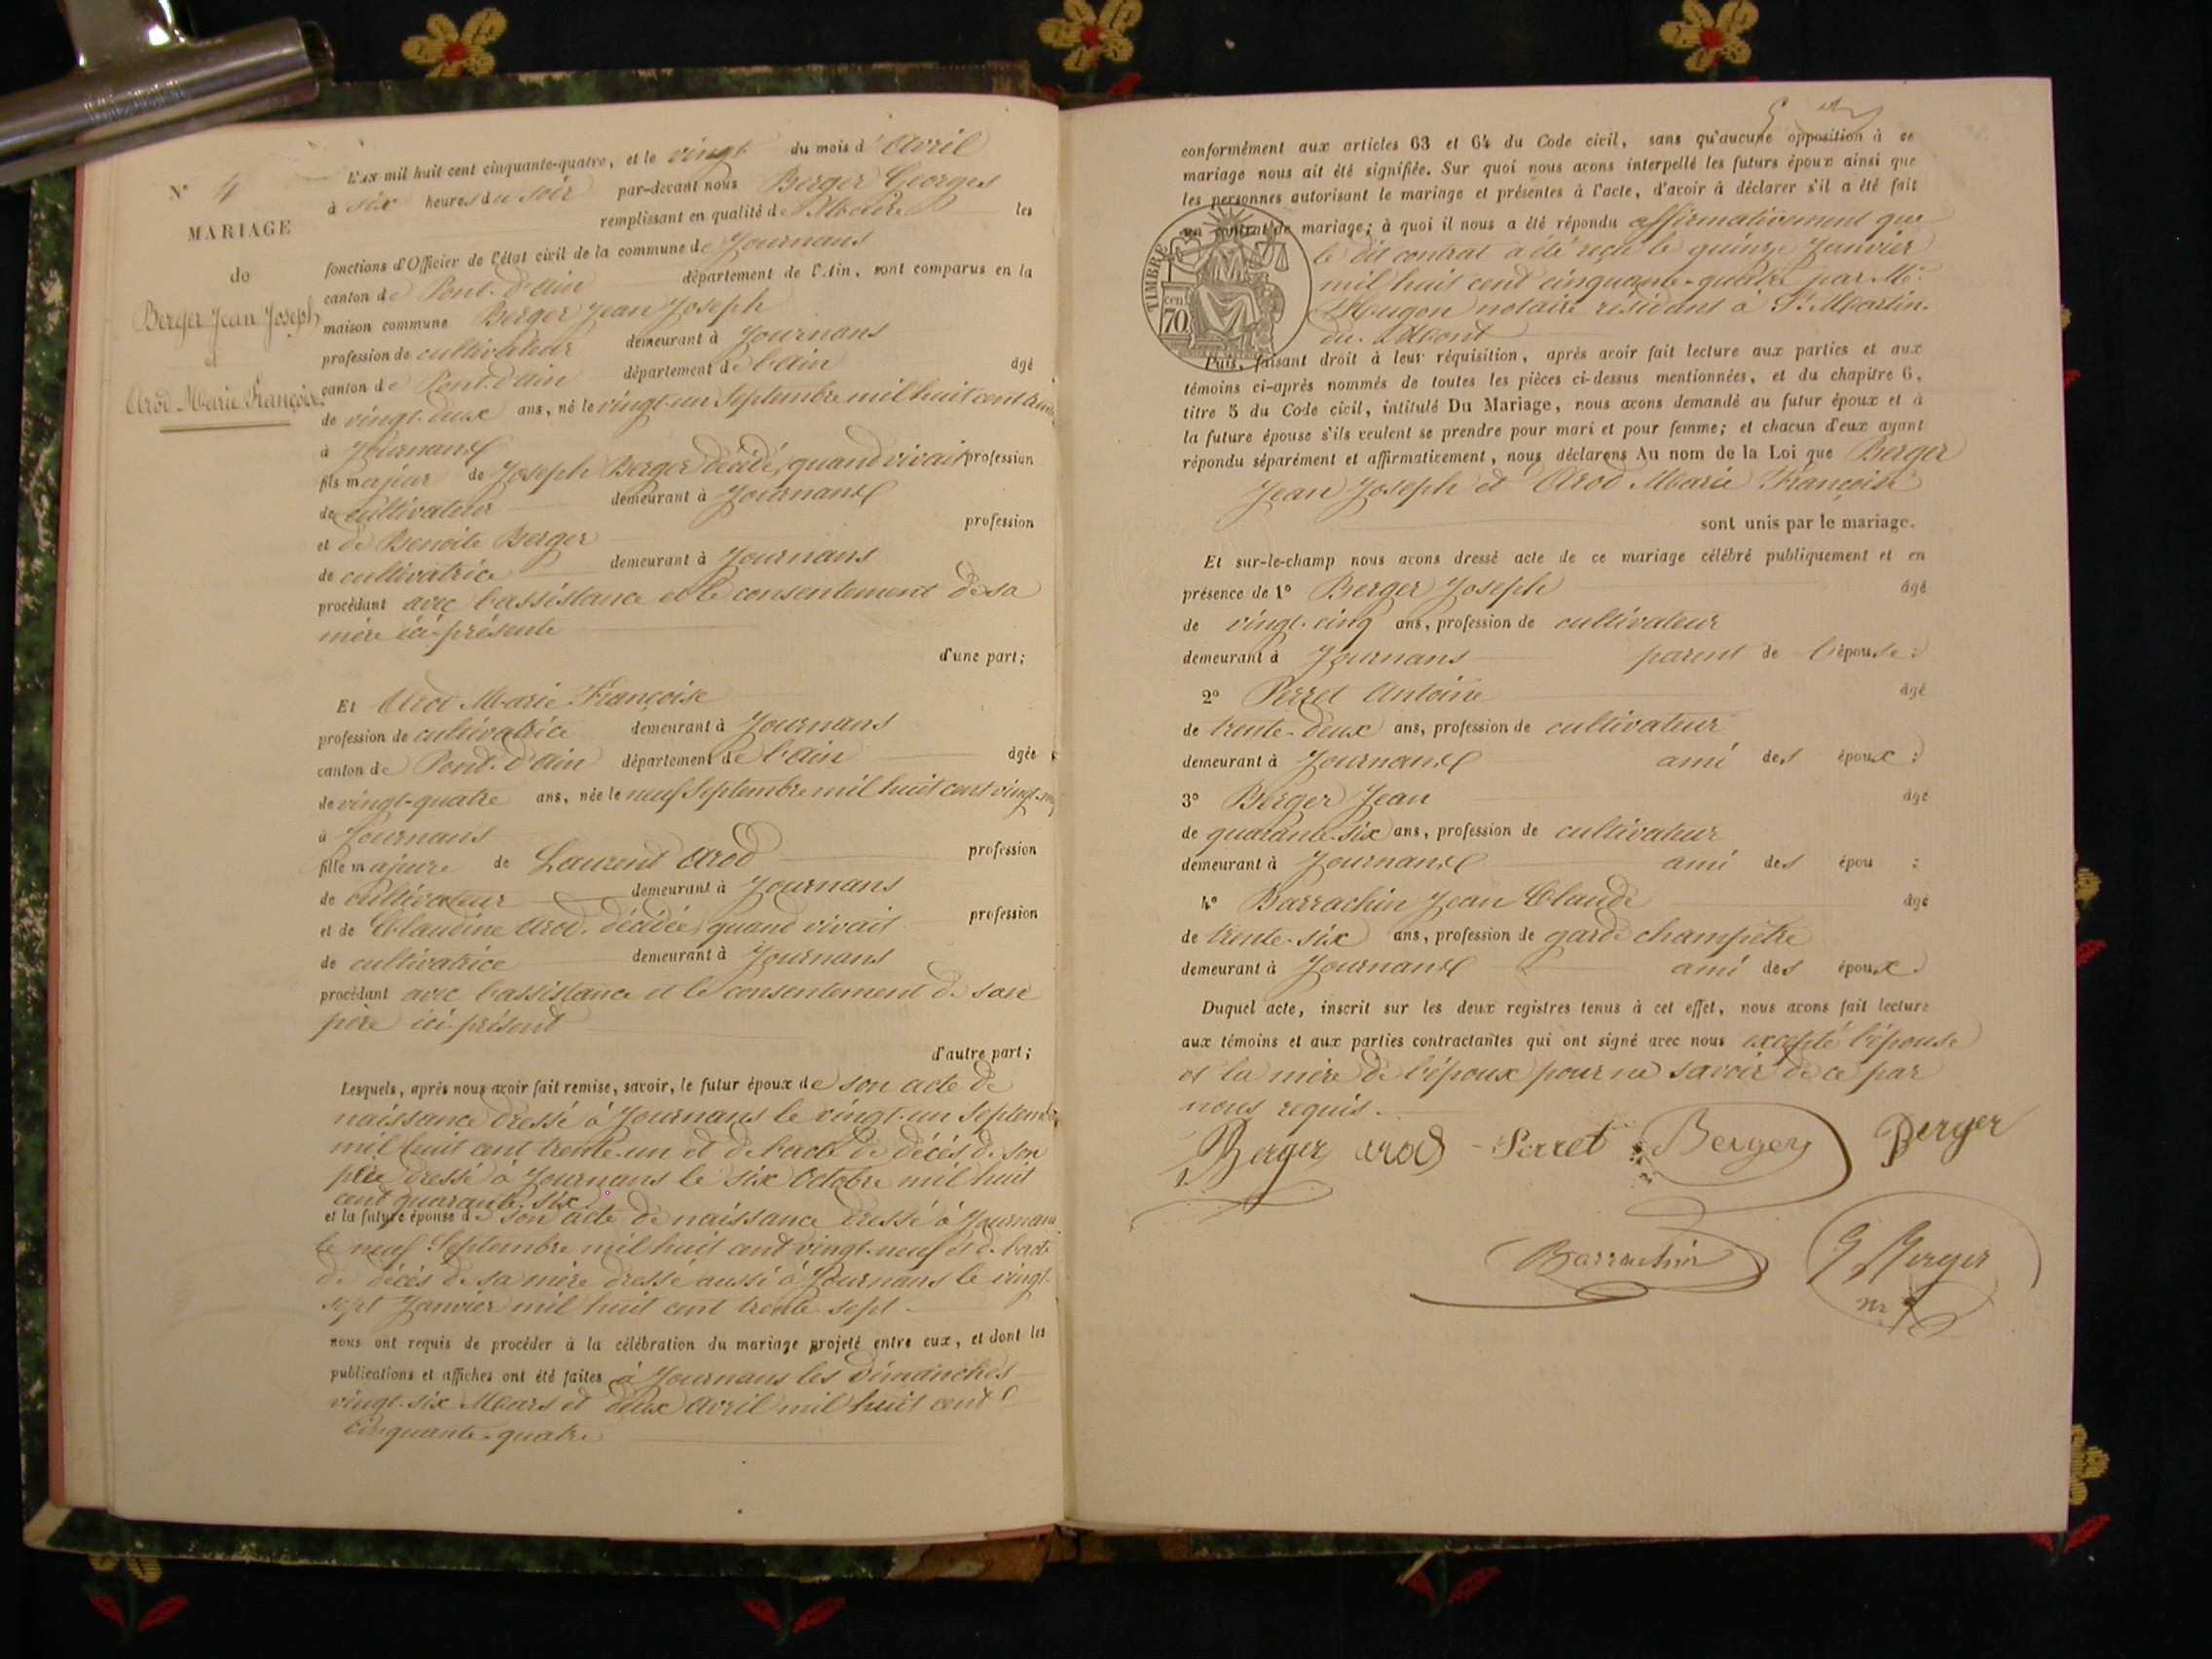 N° 4
MARIAGE
de
Berger Jean Joseph
et
Arod Marie Françoise
L'AN mil huit cent cinquante-quatre, et le vingt du mois d'Avril
à six heures du soir par-devant nous Berger Georges
remplissant en qualité de Maire les
fonctions d'Officier de l'état civil de la commune de Journans
canton de Pont-d'Ain département de l'Ain, sont comparus en la
maison commune Berger Jean Joseph
profession de cultivateur demeurant à Journans
canton de Pont-d'ain département de l'ain âgé
de vingt-deux ans, né le vingt-un Septembre mil huit cent trente
à Journans
fils majeur de Joseph Berger décédé, quand vivait profession
de cultivateur demeurant à Journans
et de Benoite Berger profession
de cultivatrice demeurant à Journans
procédant avec l'assistance et le consentement de sa
mère ici présente
d'une part;
Et Arod Marie Françoise
profession de cultivatrice demeurant à Journans
canton de Pont-d'ain département de l'ain âgée
de vingt-quatre ans, née le neuf Septembre mil huit cent vingt-neuf
à Journans
fille majeure de Laurent Arod profession
de cultivateur demeurant à Journans
et de Claudine Arod, décédée, quand vivait profession
de cultivatrice demeurant à Journans
procédant avec l'assistance et le consentement de son
père ici présent
d'autre part;
Lesquels, après nous avoir fait remise, savoir, le futur époux de son acte de
naissance dressé à Journans le vingt-un Septembre
mil huit cent trente-un et de l'acte de décès de son
père dressé à Journans le six Octobre mil huit
cent quarante-six
et la future épouse de son acte de naissance dressé à Journans
le neuf Septembre mil huit cent vingt-neuf et de l'acte
de décès de sa mère dressé aussi à Journans le vingt-
sept Janvier mil huit cent trente sept
nous ont requis de procéder à la célébration du mariage projeté entre eux, et dont les
publications et affiches ont été faites à Journans les dimanches
vingt-six Mars et deux Avril mil huit cent
cinquante-quatre
conformément aux articles 63 et 64 du Code civil, sans qu'aucune opposition à ce
mariage nous ait été signifiée. Sur quoi nous avons interpellé les futurs époux ainsi que
les personnes autorisant le mariage et présentes à l'acte, d'avoir à déclarer s'il a été fait
un contrat de mariage; à quoi il nous a été répondu affirmativement que
le dit contrat a été reçu le quinze Janvier
mil huit cent cinquante-quatre par Me
Hugon notaire résidant à St Martin-
du-Mont
TIMBRE
cen
70
Puis, faisant droit à leur réquisition, après avoir fait lecture aux parties et aux
témoins ci-après nommés de toutes les pièces ci-dessus mentionnées, et du chapitre 6,
titre 5 du Code civil, intitulé Du Mariage, nous avons demandé au futur époux et à
la future épouse s'ils veulent se prendre pour mari et pour femme; et chacun d'eux ayant
répondu séparément et affirmativement, nous déclarons Au nom de la Loi que Berger
Jean Joseph et Arod Marie Françoise
sont unis par le mariage.
Et sur-le-champ nous avons dressé acte de ce mariage célébré publiquement et en
présence de 1° Berger Joseph âgé
de vingt-cinq ans, profession de cultivateur
demeurant à Journans parent de l'épouse;
2° Perret Antoine âgé
de trente-deux ans, profession de cultivateur
demeurant à Journans ami des époux;
3° Berger Jean âgé
de quarante-six ans, profession de cultivateur
demeurant à Journans ami des épou ;
4° Barrachin Jean Claude âgé
de trente-six ans, profession de garde champêtre
demeurant à Journans ami des époux
Duquel acte, inscrit sur les deux registres tenus à cet effet, nous avons fait lecture
aux témoins et aux parties contractantes qui ont signé avec nous excepté l'épouse
et la mère de l'époux pour ne savoir de ce par
nous requis.
Berger arod Perret Berger Berger
Barrachin G Berger